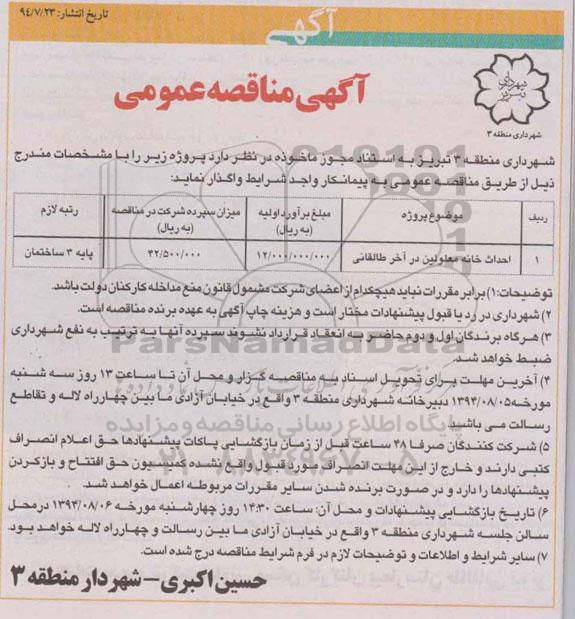 تاریخ انتشار: ۹۴/۷/۲۳
آگهی
شهرداری تبریز
شهرداری منطقه ۳
آگهی مناقصه عمومی
شهرداری منطقه ۳ تبریز به استناد مجوز ماخوذه در نظر دارد پروژه زیر را با مشخصات مندرج
ذیل از طریق مناقصه عمومی به پیمانکار واجد شرایط واگذار نماید:
ردیف موضوع پروژه مبلغ برآورد اولیه (به ریال) میزان سپرده شرکت در مناقصه (به ریال) رتبه لازم
۱ احداث خانه معلولین در آخر طالقانی ۱۲/۰۰۰/۰۰۰/۰۰۰ ۴۲/۵۰۰/۰۰۰ پایه ۳ ساختمان
توضیحات: ۱) برابر مقررات نباید هیچکدام از اعضای شرکت مشمول قانون منع مداخله کارکنان دولت باشد.
۲) شهرداری در رد یا قبول پیشنهادات مختار است و هزینه چاپ آگهی به عهده برنده مناقصه است.
۳) هرگاه برندگان اول و دوم حاضر به انعقاد قرارداد نشوند سپرده آنها به ترتیب به نفع شهرداری
ضبط خواهد شد.
۴) آخرین مهلت برای تحویل اسناد به مناقصه گزار و محل آن تا ساعت ۱۳ روز سه شنبه
مورخه ۱۳۹۴/۰۸/۰۵ دبیرخانه شهرداری منطقه ۳ واقع در خیابان آزادی ما بین چهارراه لاله و تقاطع
رسالت می باشید.
۵) شرکت کنندگان صرفا ۴۸ ساعت قبل از زمان بازگشایی پاکات پیشنهادها حق اعلام انصراف
کتبی دارند و خارج از این مهلت انصراف مورد قبول واقع نشده کمیسیون حق افتتاح و بازکردن
پیشنهادها را دارد و در صورت برنده شدن سایر مقررات مربوطه اعمال خواهد شد.
۶) تاریخ بازگشایی پیشنهادات و محل آن: ساعت ۱۴:۳۰ روز چهارشنبه مورخه ۱۳۹۴/۰۸/۰۶ در محل
سالن جلسه شهرداری منطقه ۳ واقع در خیابان آزادی ما بین رسالت و چهارراه لاله خواهد بود.
۷) سایر شرایط و اطلاعات و توضیحات لازم در فرم شرایط مناقصه درج شده است.
حسین اکبری – شهردار منطقه ۳
ParsNamadData
پایگاه اطلاع رسانی مناقصه و مزایده